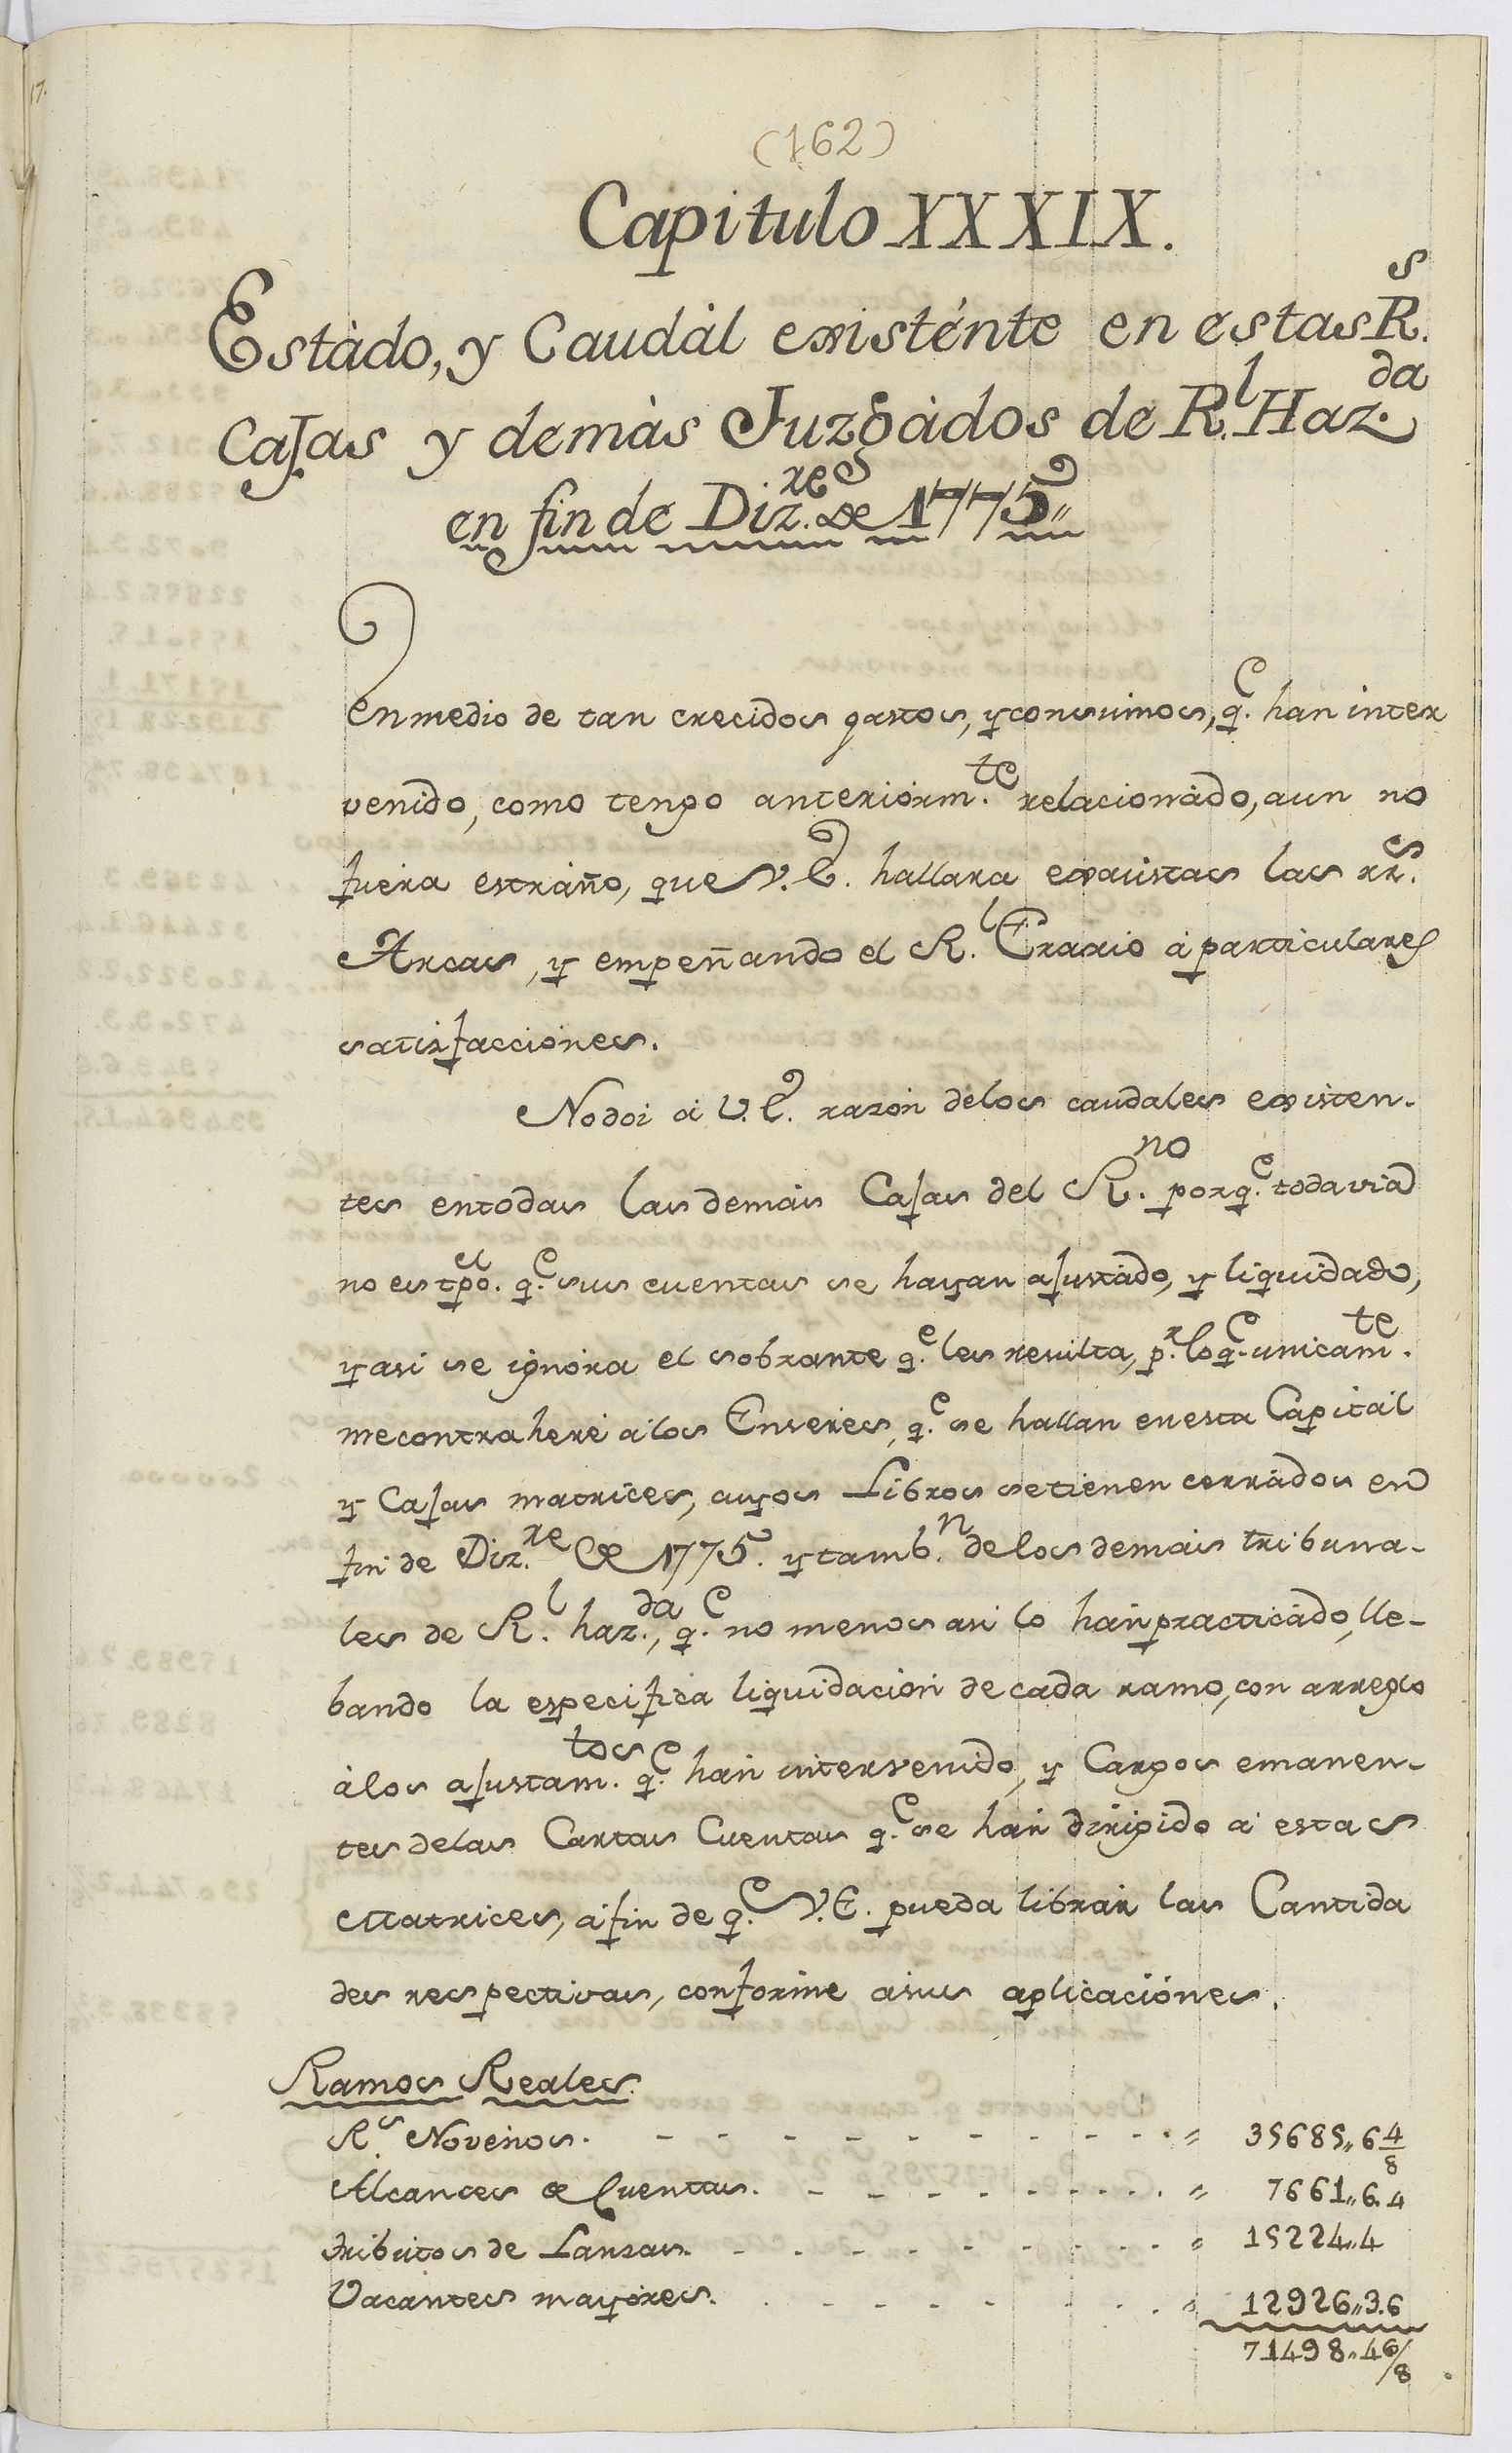 17.
(162)
Capitulo XXXIX.
Estàdo, y Caudàl existénte en estas R.s
Cajas y demàs Juzgàdos de R.l Haz.da
en fin de Diz.re de 1775,,
Enmedio de tan crecidos gastos, y consumos, q.e han inter
venido, como tengo anteriòrm.te relacionàdo, aun no
fuera estraño, que V.E. hallara exaustas las rr.s
Arcas, y empeñando el R.l Erario à particulares
satisfacciones.
No doi à V.E. razon delos caudales existen-
tes entodas las demàs Cajas del R.no porq.e todavia
no es el tpo. q.e sus cuentas se hayan ajustàdo, y liquidado,
y asi se ignora el sobrante q.e les resulta, p.r lo q.e unicam.te
me contraherè à los Enseres, q.e se hallan en esta Capitàl
y Cajas matrices, cuyos Libros se tienen cerràdos en
fin de Diz.re de 1775. y tamb.n de los demàs tribuna-
les de R.l haz.da, q.e no menos asi lo hàn practicàdo, lle-
bando la especifica liquidacion de cada ramo, con arreglo
àlos ajustam.tos q.e hàn intervenido, y Cargos emanen-
tes delas Cartas Cuentas q.e se hàn dirigido à estas
Matrices, àfin de q.e V.E. pueda libràr las Cantida
des respectivas, conforme asus aplicaciònes.
Ramos Reales.
R.s Novenos. - - - - - - - - - = 35685,,6 4/8
Alcances de Cuentas. - - - - - - - - = 7661,,6.4
tributos de Lanzas. - - - - - - - - = 15224,,4
Vacantes mayòres. - - - - - - - = 12926,,3.6
71498,,4 6/8